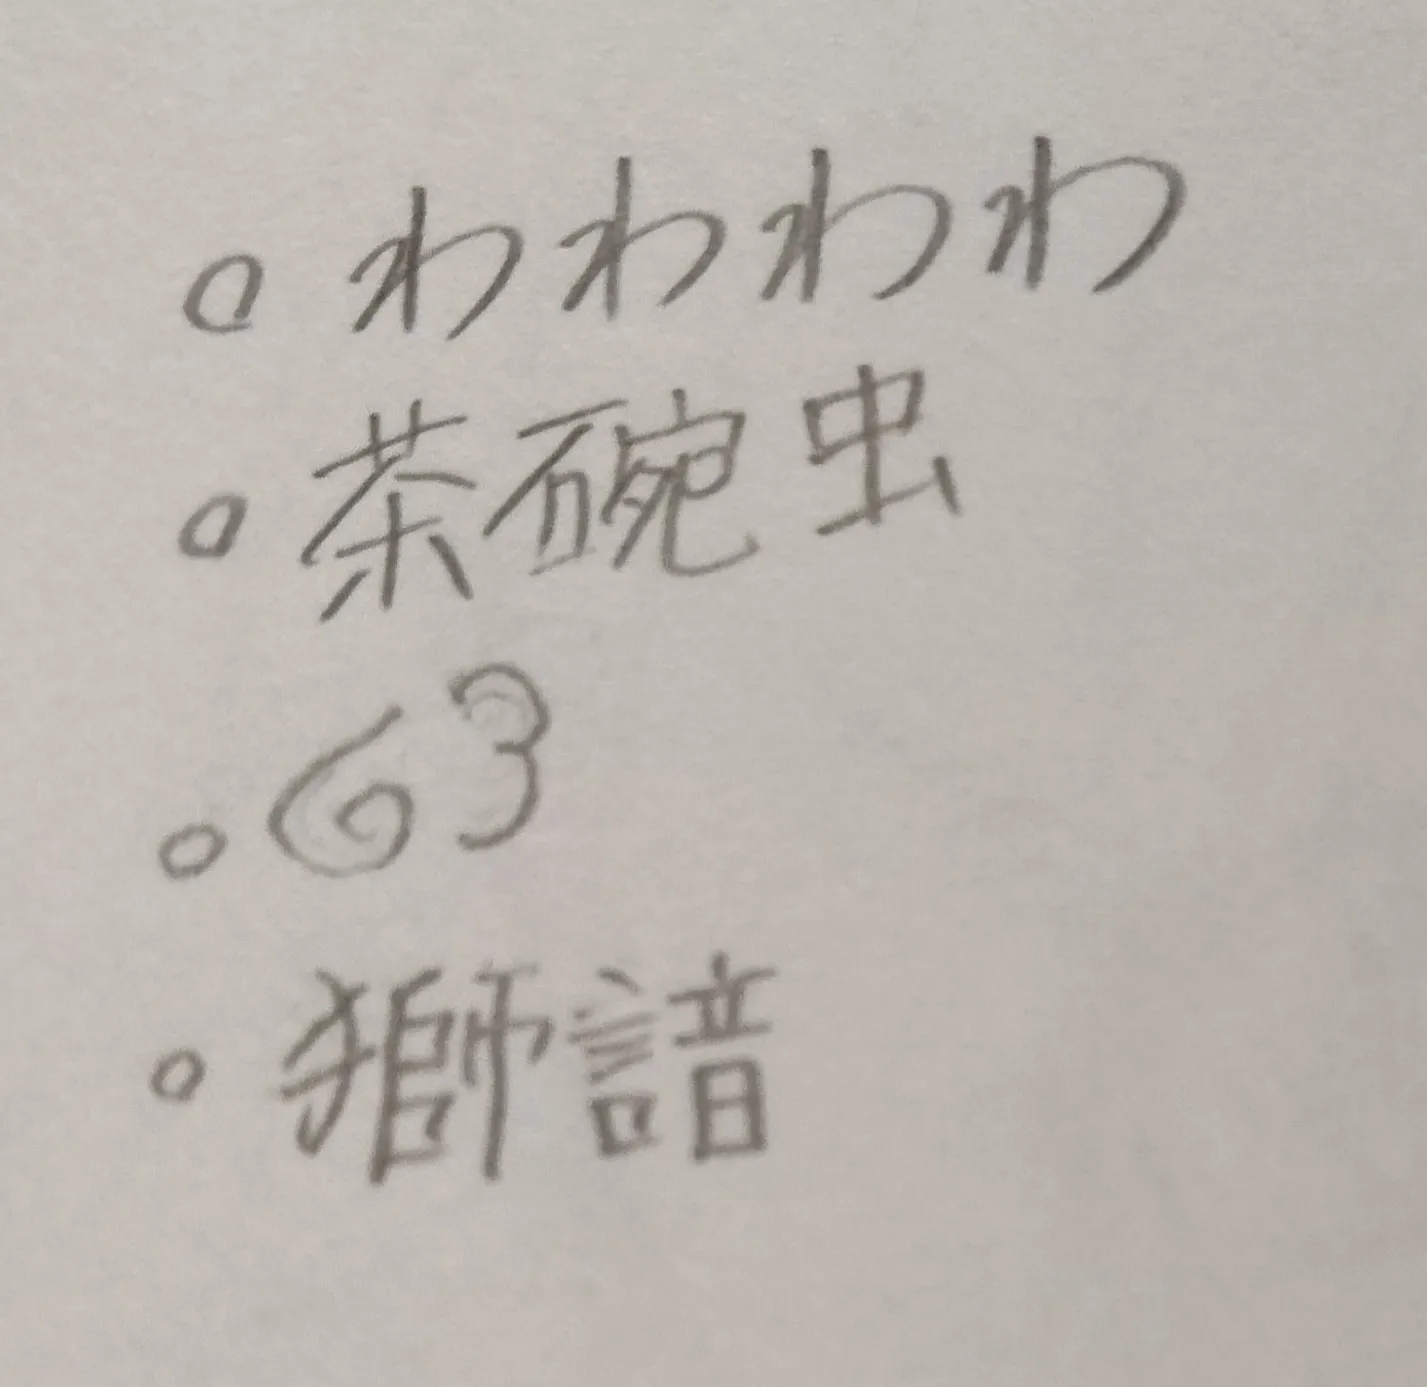 。わわわわ
。茶碗虫
。63
。獅諳